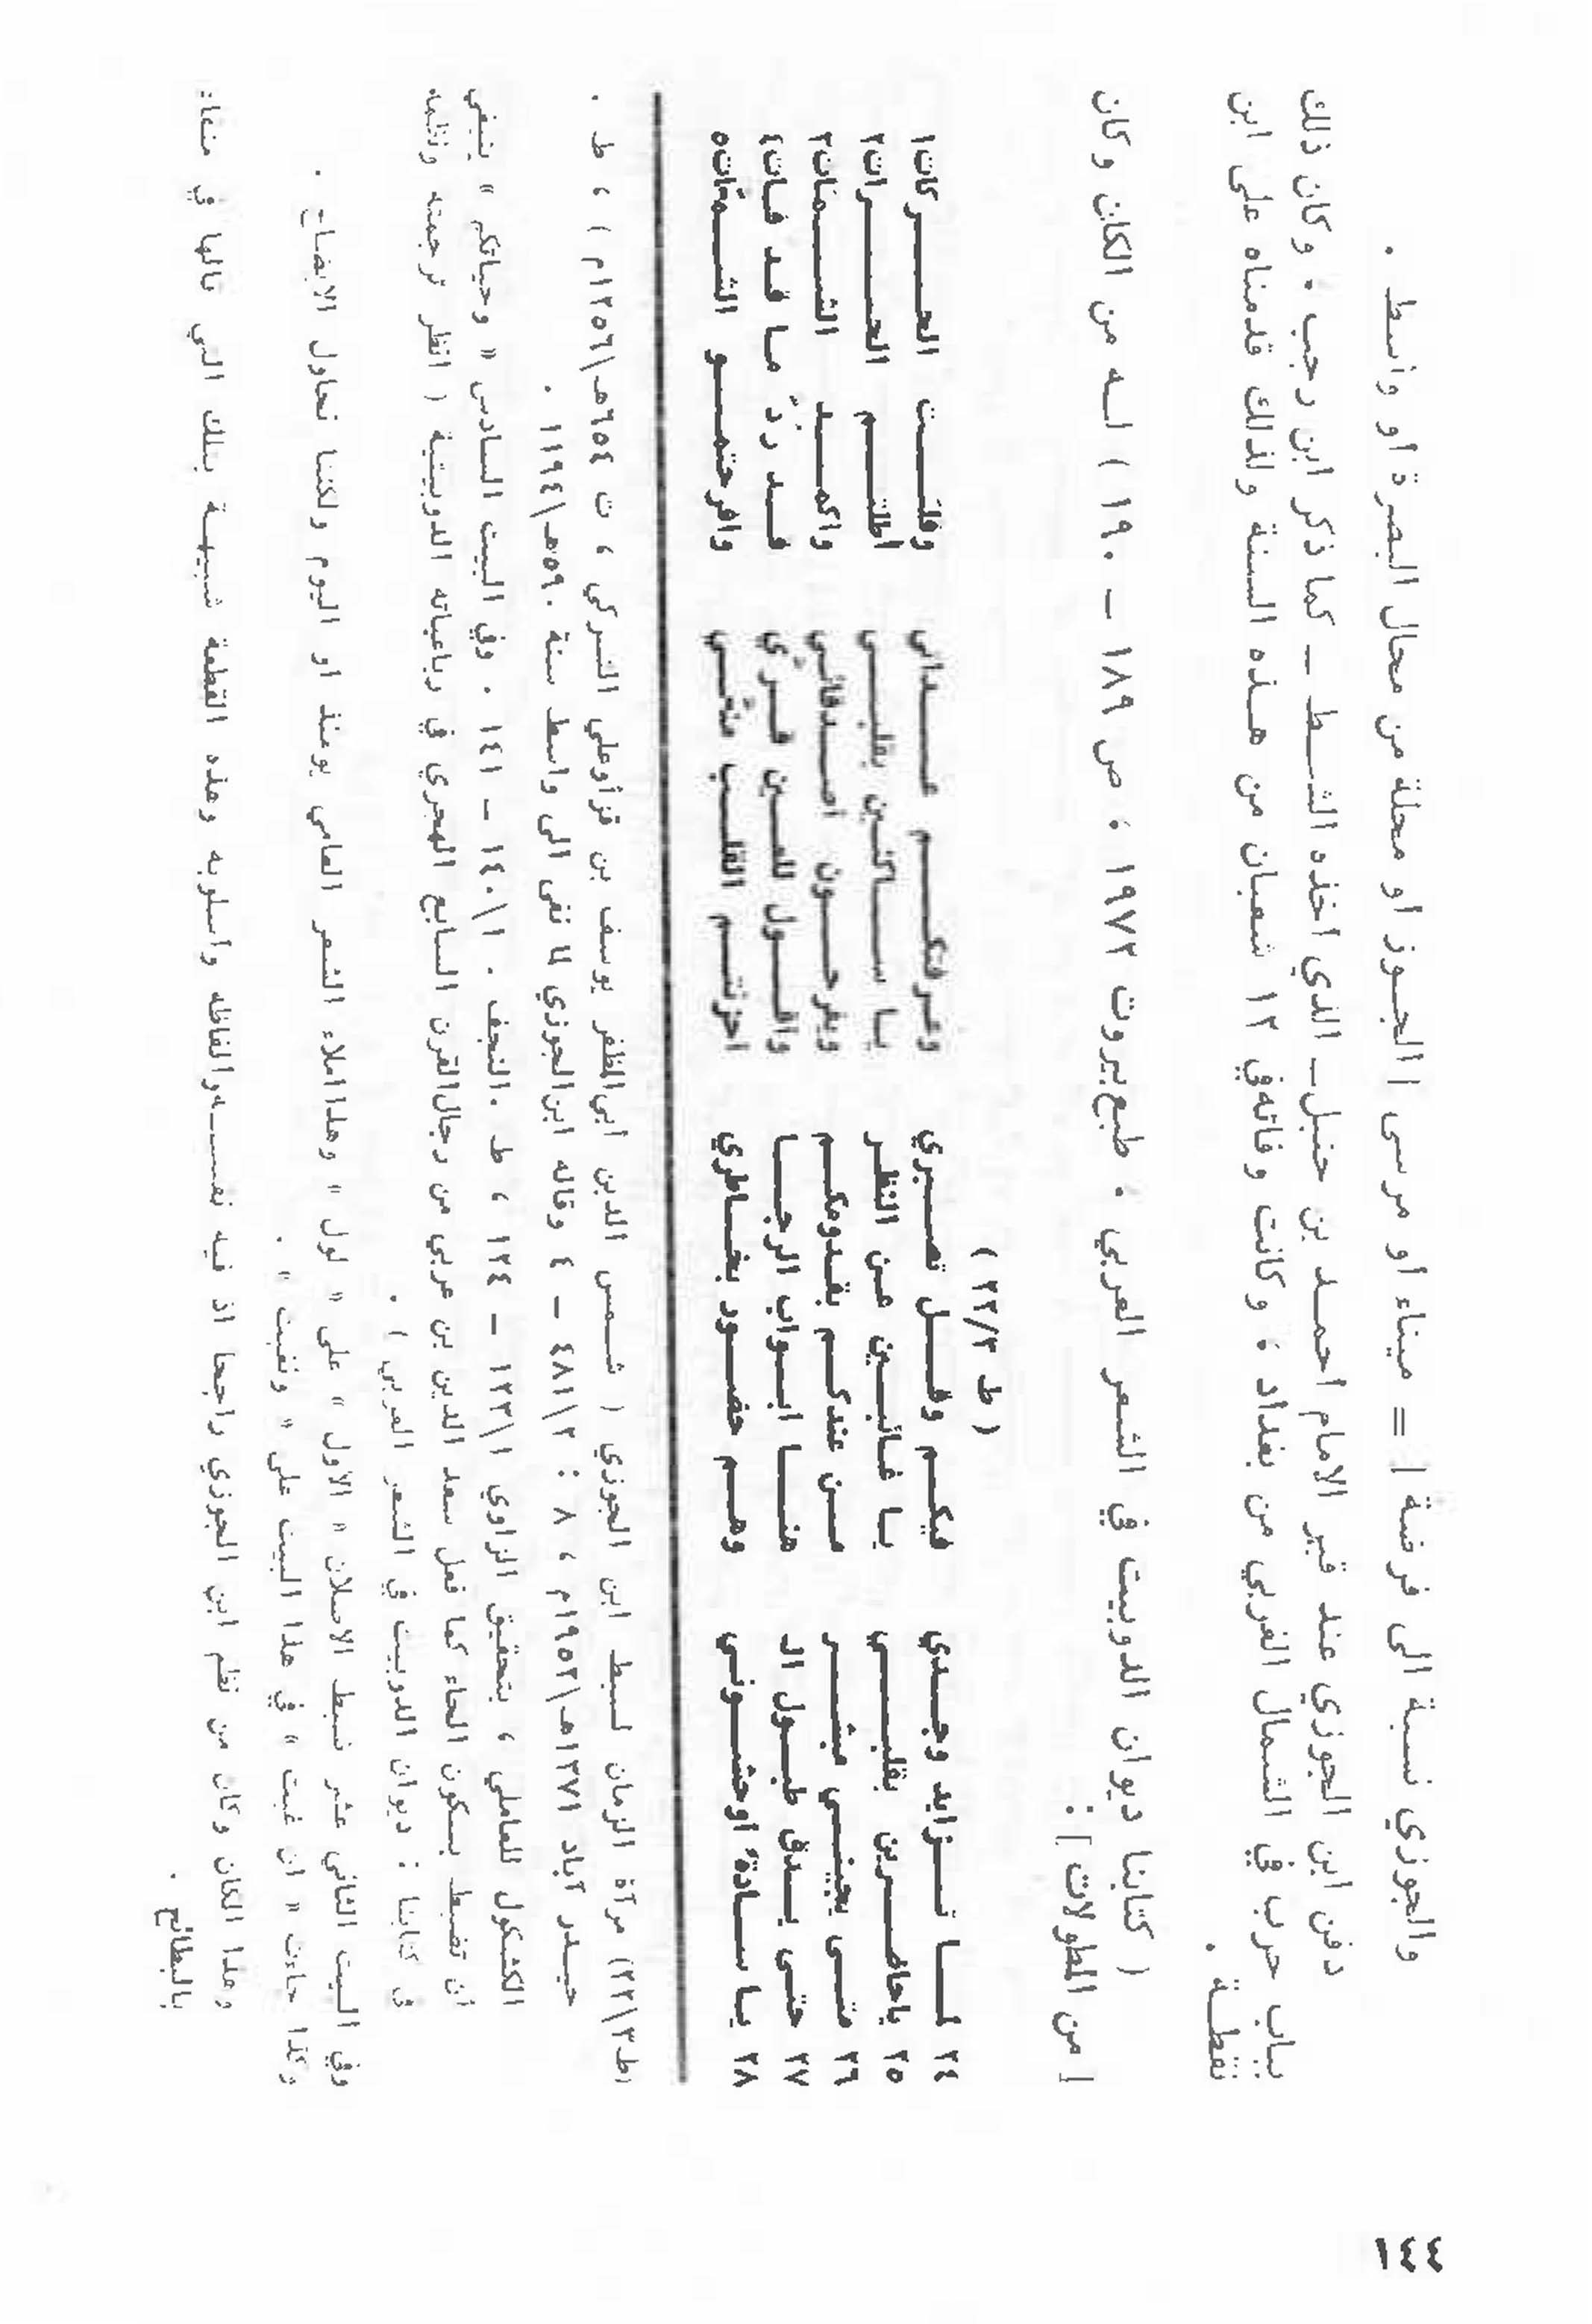 ١٤٤
والجوزي نسبة الى فرضة [ = ميناء او مرسى ] الجوز او محلة من محال البصرة او واسط .
دفن ابن الجوزي عند قبر الامام احمد بن حنبل ـ الذي اخذه الشط ـ كما ذكر ابن رجب ، وكان ذلك
بباب حرب في الشمال الغربي من بغداد ، وكانت وفاته في ١٢ شعبان من هذه السنة ولذلك قدمناه على ابن
نقطة .
( كتابنا ديوان الدوبيت في الشعر العربي ، طبع بيروت ١٩٧٢ ، ص ١٨٩ ـ ١٩٠ ) له من الكان وكان
[ من المطولات ] :
( ط ٢٢/٣ )
٢٤ لما تزايد وجدي فيكم وقل تصبري وعرفتكم عذالي وقلت الحركات١
٢٥ ياحاضرين بقلبي يا غائبين عن النظر يا ساكنين بقلبي أطلتم الحسرات٢
٢٦ متى يجيني مبشر من عندكم بقدومكم ويفرحون أصدقائي واكمد الشمات٣
٢٧ حتى يدق طبول الـ هنا ابواب الرجا واقول للعين قرّي قد ردّ ما قد فات٤
٢٨ يا سادة اوحشوني وهم حضور بخاطري احزنتم القلب منّي وافرحتمو الشمّات٥
(ط٢٢/٣) مرآة الزمان لسبط ابن الجوزي ( شمس الدين ابي المظفر يوسف بن قزأوغلي التركي ، ت ٦٥٤هـ/١٢٥٦م ) ، ط .
حيدر آباد ١٣٧١هـ/١٩٥٢م ، ٨ : ٤٨١/٢ ـ ٤ وقاله ابن الجوزي لما نفي الى واسط سنة ٥٩٠هـ/١١٩٤ .
الكشكول للعاملي ، بتحقيق الزاوي ١٢٣/١ ـ ١٢٤ ، ط . النجف ١٤٠/١ ـ ١٤١ . وفي البيت السادس « وحياتكم » ينبغي
ان تضبط بسكون الحاء كما فعل سعد الدين بن عربي من رجال القرن السابع الهجري في رباعياته الدوبيتية ( انظر ترجمته ونظمه
في كتابنا : ديوان الدوبيت في الشعر العربي ) .
وفي البيت الثاني عشر ضبط الاصلان « الأول » على « لول » وهذا املاء الشعر العامي يومئذ او اليوم ولكننا نحاول الايضاح .
وكذا جاءت « ان غبت » في هذا البيت على « ونغبت » .
وهذا الكان وكان من نظم ابن الجوزي راجحا اذ فيه نفسه والفاظه واسلوبه وهذه القطعة شبيهة بتلك التي قالها في منفاه
بالبطائح .